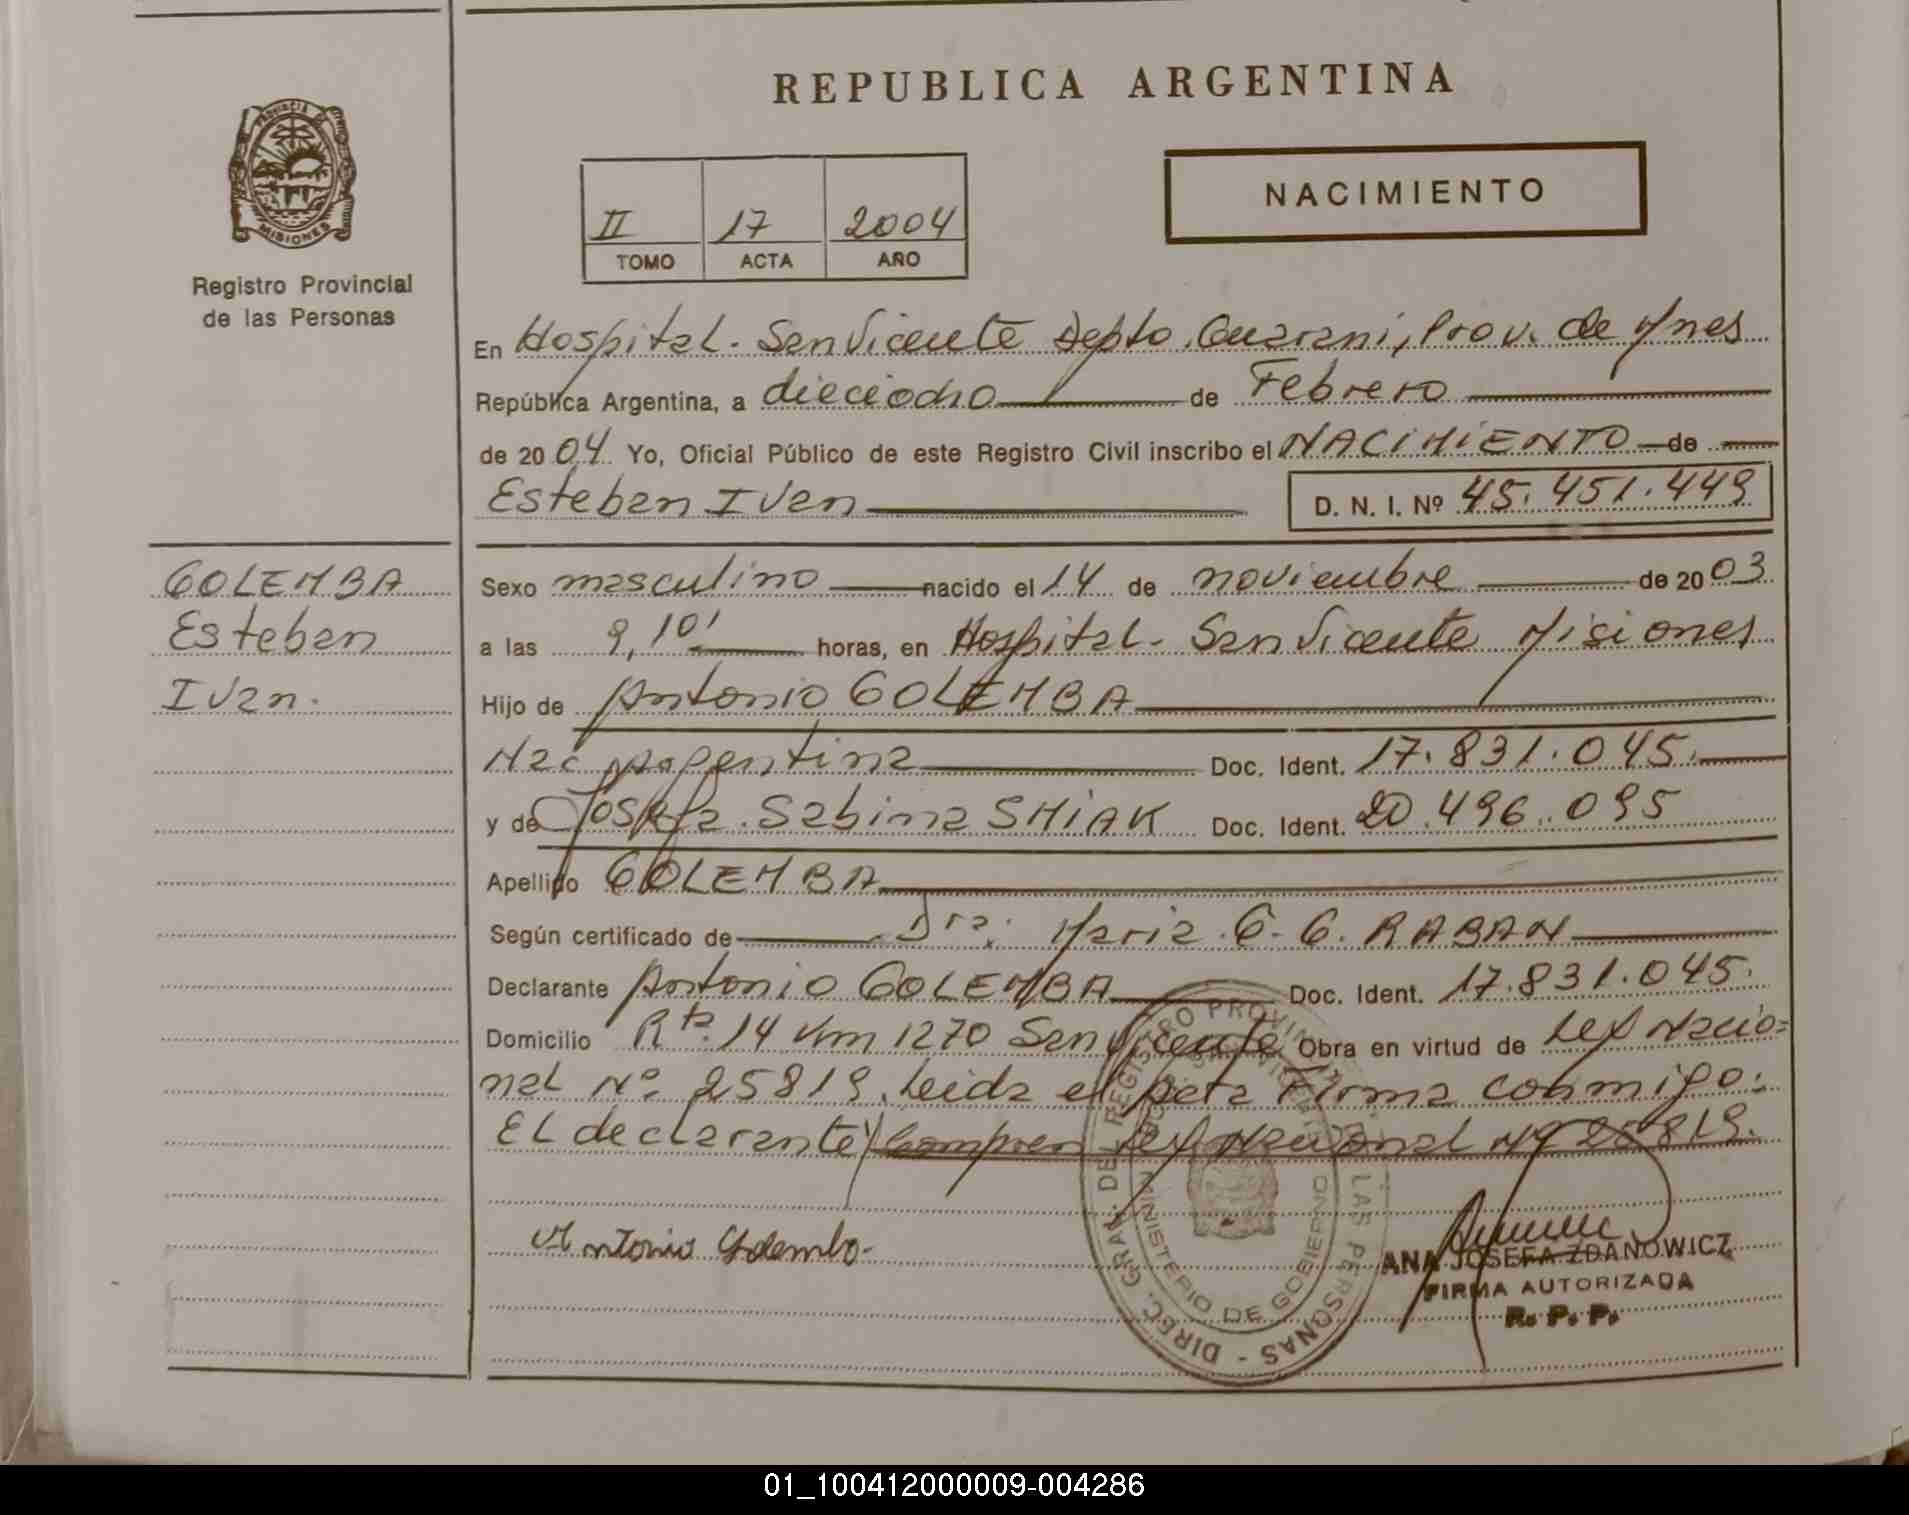 REPUBLICA ARGENTINA
PROVINCIA
MISIONES
Registro Provincial
de las Personas
II 17 2004
TOMO ACTA AÑO
NACIMIENTO
En Hospital. San Vicente Depto. Guarani, Prov. de Mnes
República Argentina, a dieciocho de Febrero
de 20 04 Yo, Oficial Público de este Registro Civil inscribo el NACIMIENTO de
Esteban Ivan D. N. I. Nº 45.451.449
GOLEMBA
Esteban
Ivan.
Sexo masculino nacido el 14 de noviembre de 20 03
a las 9,10' horas, en Hospital. San Vicente Misiones
Hijo de Antonio GOLEMBA
Nac Argentina Doc. Ident. 17.831.045.
y de Josefa. Sabina SMIAK Doc. Ident. 20.496.095
Apellido GOLEMBA
Según certificado de Dra. Maria G. G. RABAN
Declarante Antonio GOLEMBA Doc. Ident. 17.831.045.
Domicilio Rta. 14 Km 1270 San Vicente Obra en virtud de Ley Nacio=
nal Nº 25819. Leida el Acta Firma conmigo:
El declarante Ley Nacional Nº 25819.
Antonio Golemba
ANA JOSEFA ZDANOWICZ
FIRMA AUTORIZADA
R. P. P.
DIREC. GRAL. DEL REGISTRO PROVINCIAL LAS PERSONAS -
MINISTERIO DE GOBIERNO
01_100412000009-004286